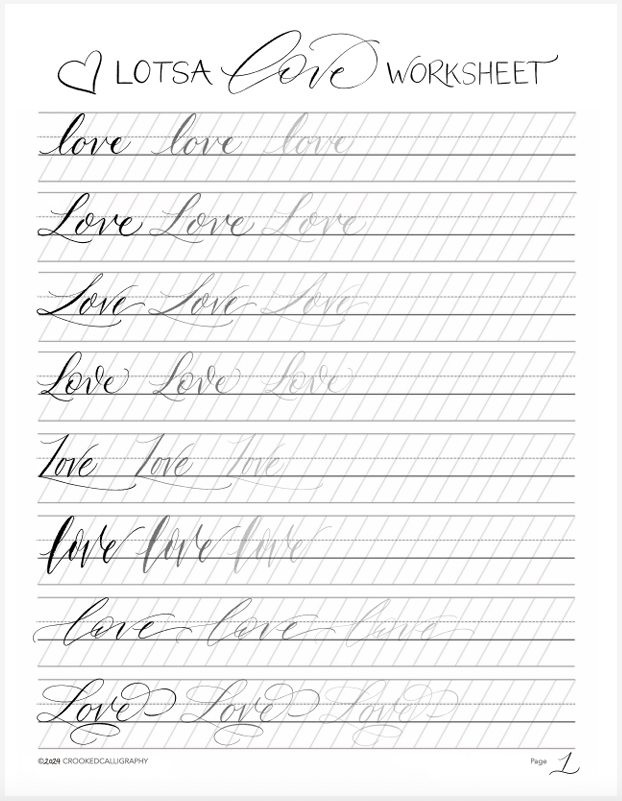 LOTSA love WORKSHEET
love love love
Love Love Love
Love Love Love
Love Love Love
Love Love Love
love love love
love love love
Love Love Love
©2024 CROOKEDCALLIGRAPHY Page 1